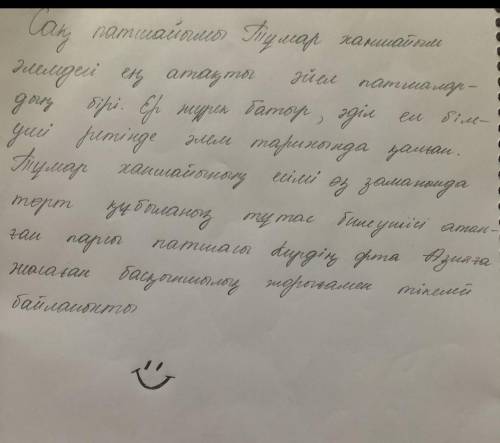 Сақ патшайымы Тұмар ханшайым
әлемдегі ең атақты әйел патшалар-
дың бірі. Ер жүрек батыр, әділ ел біле-
уші ретінде әлем тарихында қалған.
Тұмар ханшайының есімі өз заманында
төрт құбыланың тұтас билеушісі атан-
ған парсы патшасы Кирдің Орта Азияға
жасаған басқыншылық жорығымен тікелей
байланысты